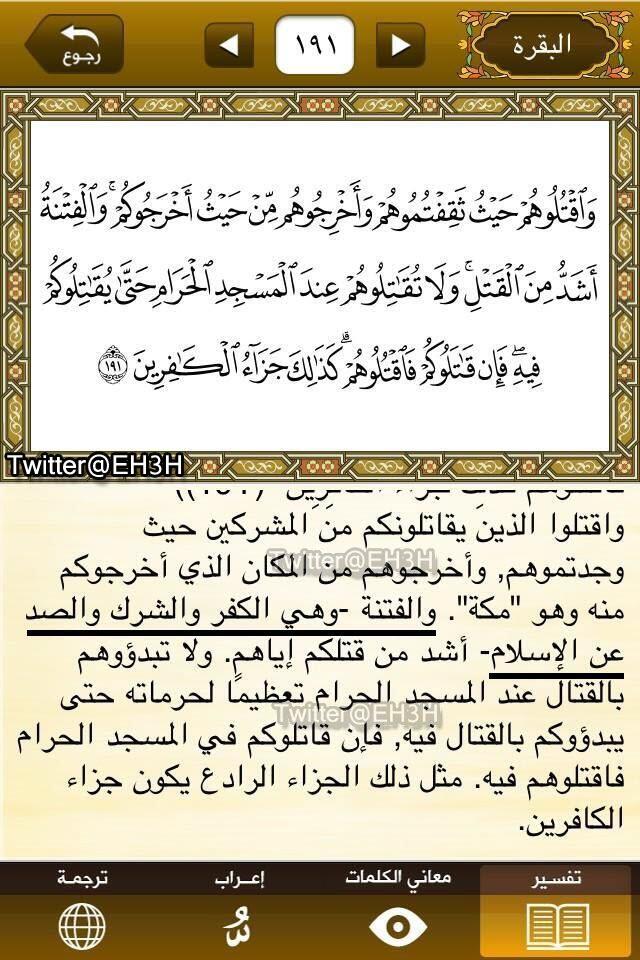 رجوع
١٩١
البقرة
وَٱقۡتُلُوهُمۡ حَيۡثُ ثَقِفۡتُمُوهُمۡ وَأَخۡرِجُوهُم مِّنۡ حَيۡثُ أَخۡرَجُوكُمۡۚ وَٱلۡفِتۡنَةُ
أَشَدُّ مِنَ ٱلۡقَتۡلِۚ وَلَا تُقَٰتِلُوهُمۡ عِندَ ٱلۡمَسۡجِدِ ٱلۡحَرَامِ حَتَّىٰ يُقَٰتِلُوكُمۡ
فِيهِۖ فَإِن قَٰتَلُوكُمۡ فَٱقۡتُلُوهُمۡۗ كَذَٰلِكَ جَزَآءُ ٱلۡكَٰفِرِينَ ١٩١
Twitter@EH3H
واقتلوا الذين يقاتلونكم من المشركين حيث
وجدتموهم, وأخرجوهم من المكان الذي أخرجوكم
Twitter@EH3H
منه وهو "مكة". والفتنة -وهي الكفر والشرك والصد
عن الإسلام- أشد من قتلكم إياهم. ولا تبدؤوهم
بالقتال عند المسجد الحرام تعظيمًا لحرماته حتى
Twitter@EH3H
يبدؤوكم بالقتال فيه, فإن قاتلوكم في المسجد الحرام
فاقتلوهم فيه. مثل ذلك الجزاء الرادع يكون جزاء
الكافرين.
تفسير
معاني الكلمات
إعراب
ترجمة